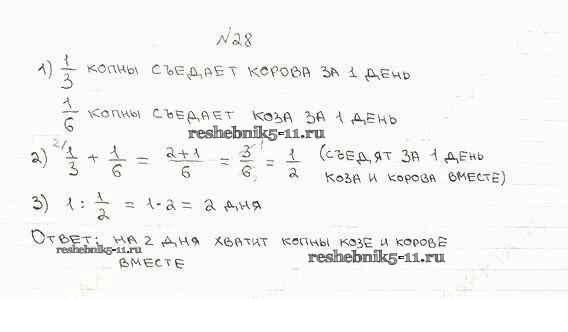 №28
1) 1/3 копны съедает корова за 1 день
1/6 копны съедает коза за 1 день
reshebnik5-11.ru
2) 2/ 1/3 + 1/6 = 2+1/6 = 3/6 = 1/2 (съедят за 1 день
коза и корова вместе)
3) 1 : 1/2 = 1·2 = 2 дня
Ответ: на 2 дня хватит копны козе и корове
reshebnik5-11.ru
вместе
reshebnik5-11.ru